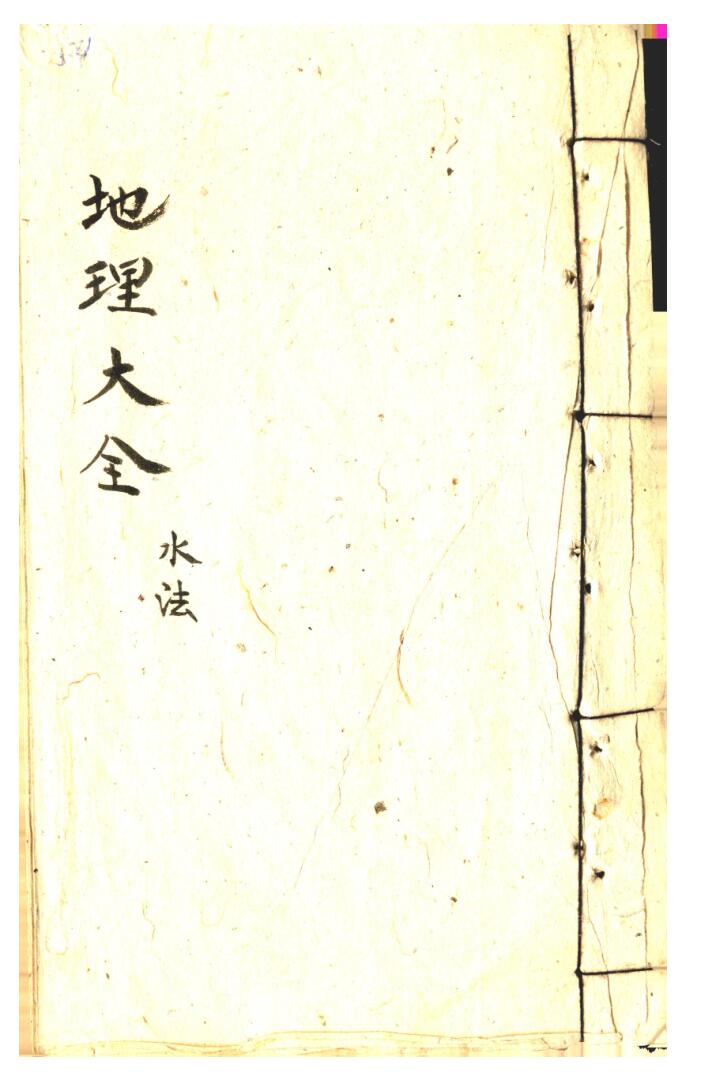 地理大全
水法